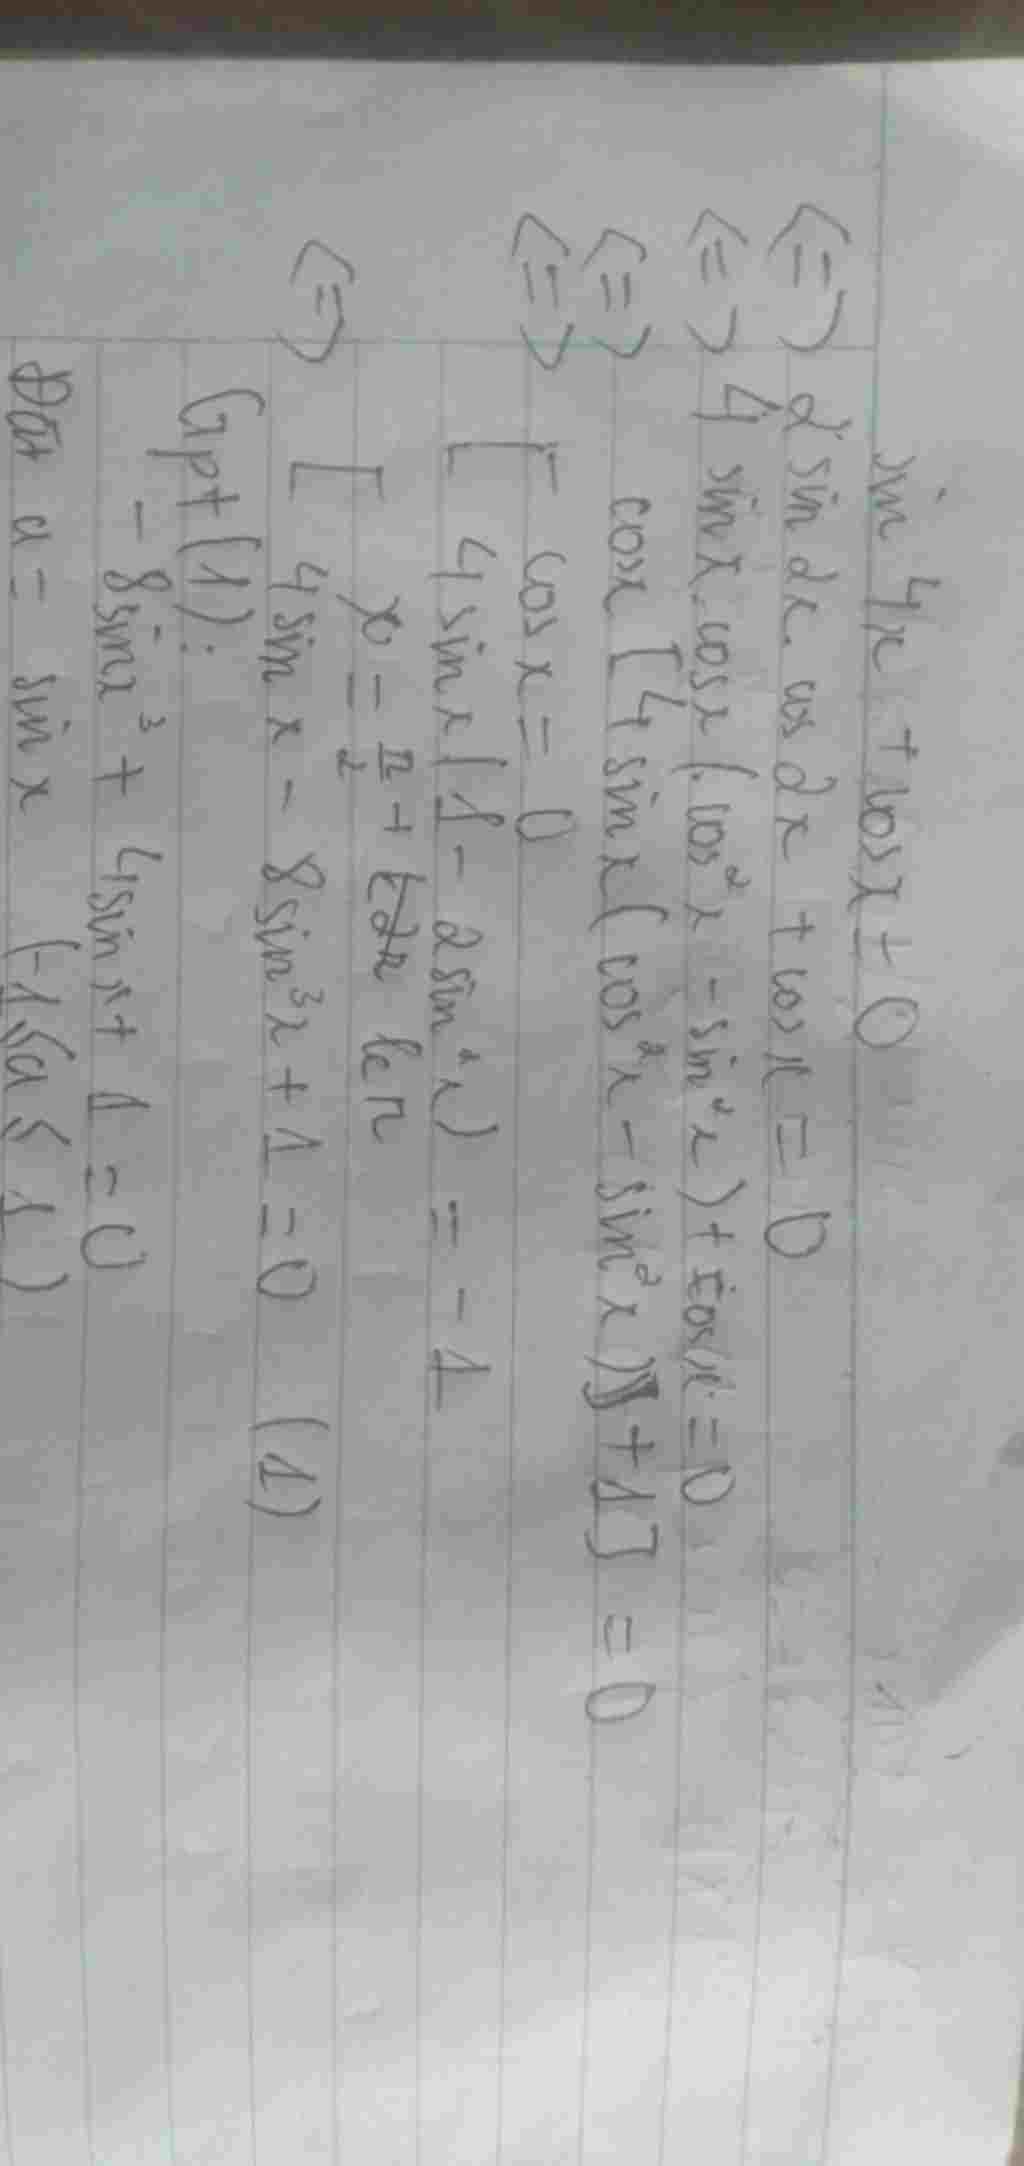 sin 4x + cos x = 0
<=> 2 sin 2x. cos 2x + cos x = 0
<=> 4 sin x. cos x (cos²x - sin²x) + cos x = 0
<=> cos x [4 sin x (cos²x - sin²x) + 1] = 0
<=> [ cos x = 0
4 sin x (1 - 2 sin²x) = -1
<=> [ x = π/2 + kπ
4 sin x - 8 sin³x + 1 = 0 (1)
Gpt (1):
- 8 sin x³ + 4 sin x + 1 = 0
Đặt a = sin x (-1 ≤ a ≤ 1)